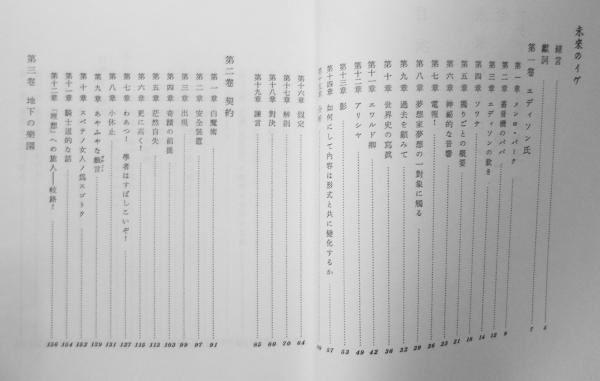 未來のイヴ
緒言
獻詞 5
第一卷 エディソン氏 7
第一章 メンロ・パーク 9
第二章 蓄音機のパパ 12
第三章 エディソンの歎き 14
第四章 ソワナ 18
第五章 獨りごとの概要 21
第六章 神祕的な音響 23
第七章 電報！ 26
第八章 夢想家夢想の一對象に觸る 29
第九章 過去を顧みて 32
第十章 世界史の寫眞 36
第十一章 エワルド卿 38
第十二章 アリシヤ 42
第十三章 影 49
第十四章 如何にして内容は形式と共に變化するか 53
第十五章 分析 57
第十六章 假定 64
第十七章 解剖 70
第十八章 對決
第十九章 諫言 85
第二卷 契約
第一章 白魔術 91
第二章 安全裝置 97
第三章 出現 99
第四章 奇蹟の前提 103
第五章 茫然自失 112
第六章 更に高く！ 115
第七章 わあつ！ 學者はすばしこいぞ！ 127
第八章 小休止 131
第九章 あやふやな戲言 139
第十章 スベテノ女人ノ爲スゴトク 152
第十一章 騎士道的な話 154
第十二章 「理想」への旅人――岐路！ 156
第三卷 地下の樂園